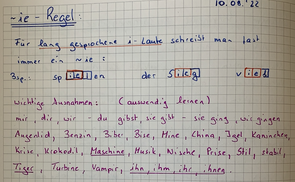 10.08.'22
~ie - Regel:
Für lang gesprochene i-Laute schreibst man fast
immer ein ~ie:
Bsp.: spielen der Sieg viel
Wichtige Ausnahmen: (auswendig lernen)
mir, dir, wir - du gibst, sie gibt - sie ging, wir gingen
Augenlid, Benzin, Biber, Bise, Mine, China, Igel, Kaninchen,
Krise, Krokodil, Maschine, Musik, Nische, Prise, Stil, stabil,
Tiger, Turbine, Vampir, ihn, ihm, ihr, ihnen